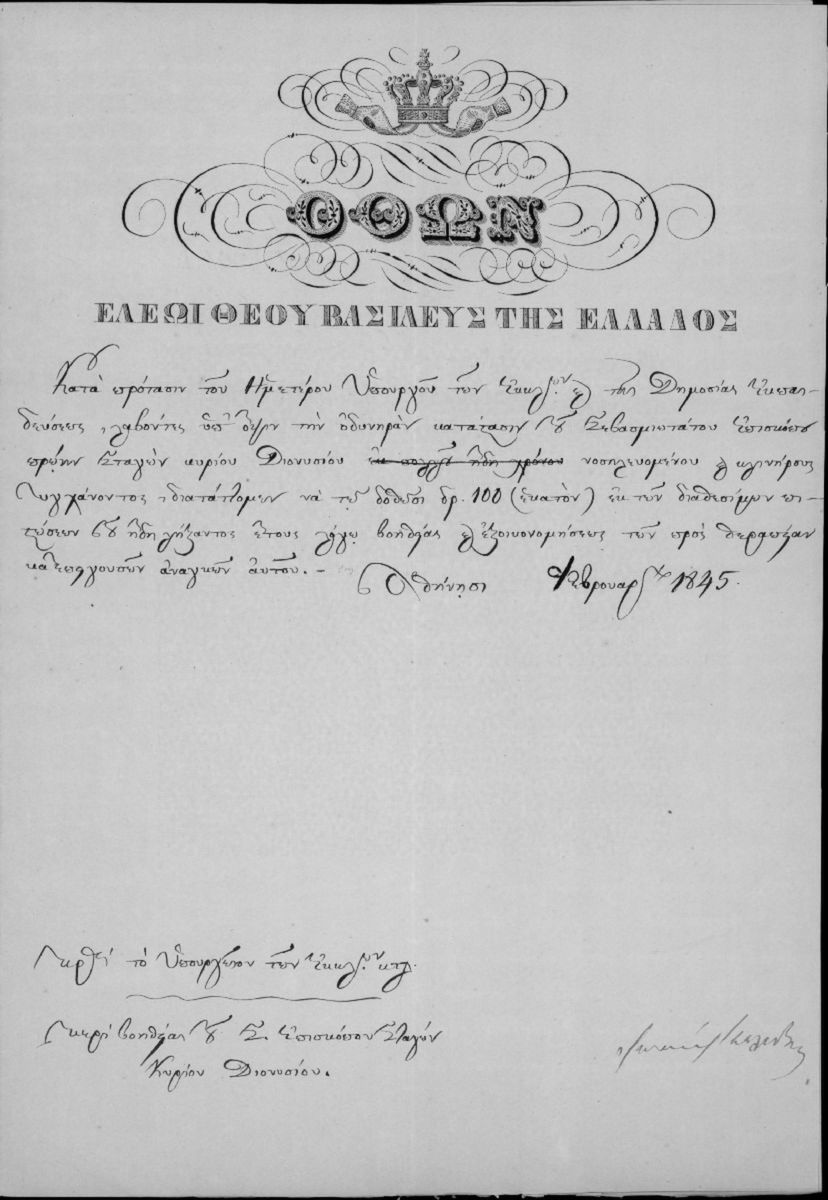 ΟΘΩΝ
ΕΛΕΩΙ ΘΕΟΥ ΒΑΣΙΛΕΥΣ ΤΗΣ ΕΛΛΑΔΟΣ
Κατὰ πρότασιν τοῦ Ἡμετέρου Ὑπουργοῦ τῶν Ἐκκλ.ῶν καὶ τῆς Δημοσίας Ἐκπαι-
δεύσεως, λαβόντες ὑπ' ὄψιν τὴν ὀδυνηρὰν κατάστασιν τοῦ Σεβασμιωτάτου Ἐπισκόπου
πρώην Σταγῶν κυρίου Διονυσίου ἐκ πολλοῦ ἤδη χρόνου νοσηλευομένου καὶ κλινήρους
τυγχάνοντος, διατάττομεν νὰ τῷ δοθῶσι δρ. 100 (ἑκατὸν) ἐκ τῶν διαθεσίμων πι-
στώσεων τοῦ ἤδη λήξαντος ἔτους λόγῳ βοηθείας καὶ ἐξοικονομήσεως τῶν πρὸς θεραπείαν
κατεπειγουσῶν ἀναγκῶν αὐτοῦ. –
Ἀθήνησι Φεβρουαρ. 1845.
τὸ Ὑπουργεῖον τῶν Ἐκκλ.ῶν κτλ.
Περὶ βοηθείας τοῦ Σ. Ἐπισκόπου Σταγῶν
Κυρίου Διονυσίου.